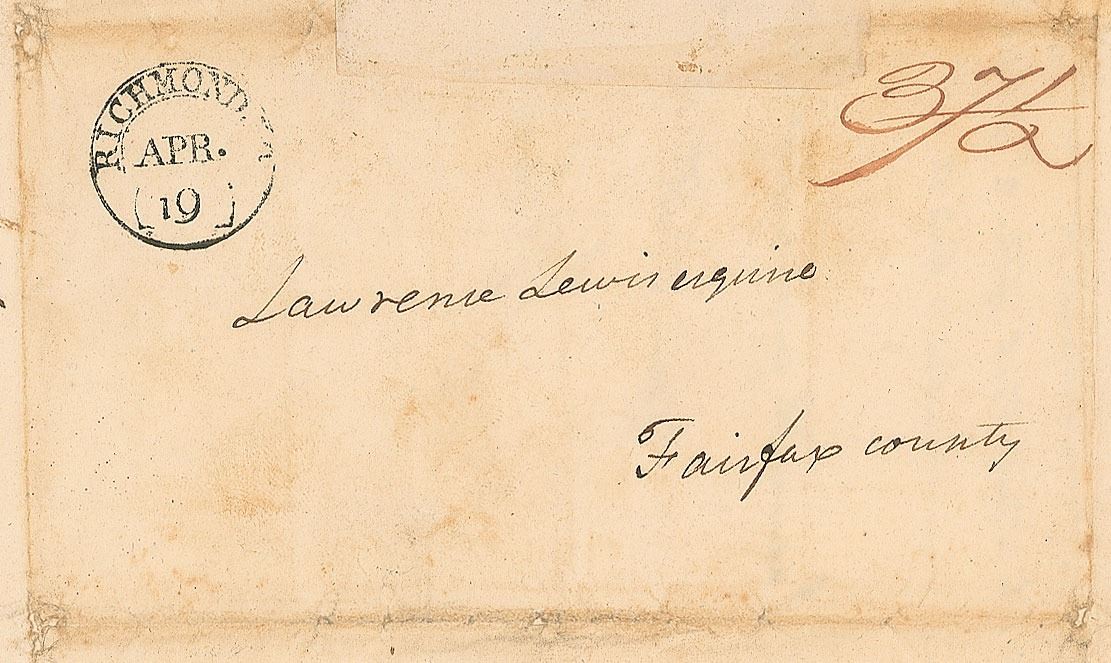 RICHMOND. VA
APR.
19
37½
Lawrence Lewis esquire
Fairfax county